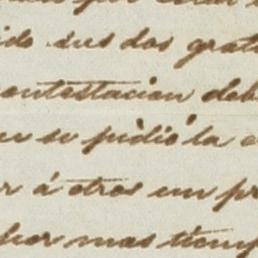 ido sus dos grat
ontestacion deb
se pidió la
r á otros un pr
mas tiemp